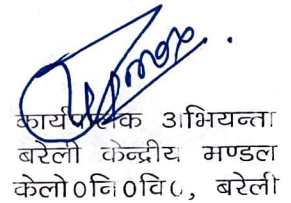 कार्यपालक अभियन्ता
बरेली केन्द्रीय मण्डल
केलो0नि0वि0, बरेली